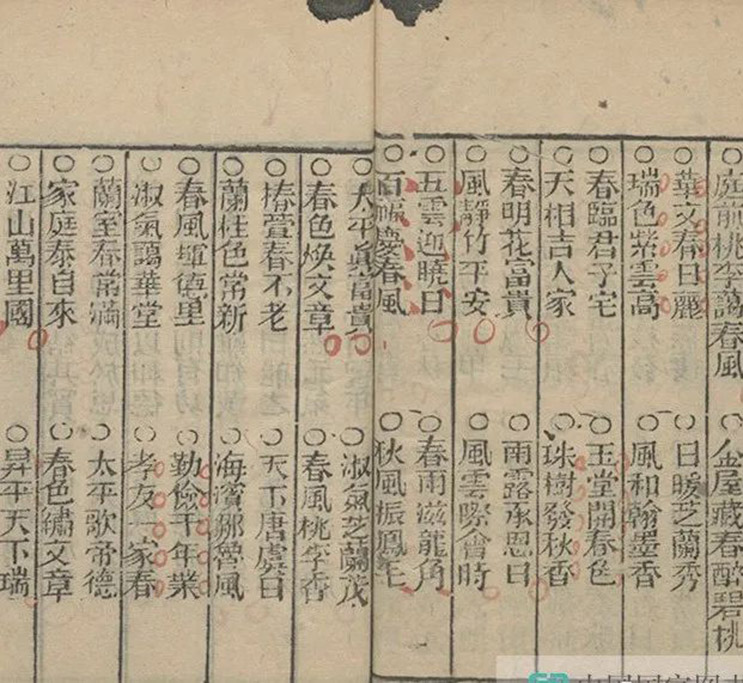 ○庭前桃李藹春風 ○金屋藏春醉碧桃
○華文春日麗 ○日暖芝蘭秀
○瑞色紫雲高 ○風和翰墨香
○春臨君子宅 ○玉堂開春色
○天相吉人家 ○珠樹發秋香
○春明花富貴 ○雨露承恩日
○風靜竹平安 ○風雲際會時
○五雲迎曉日 ○春雨滋龍角
○百福慶春風 ○秋風振鳳毛
○太平眞富貴 ○淑氣芝蘭茂
○春色煥文章 ○春風桃李香
○椿萱春不老 ○天下唐虞日
○蘭桂色常新 ○海濱鄒魯風
○春風德里 ○勤儉千年業
○淑氣藹華堂 ○孝友一家春
○蘭室春常滿 ○太平歌帝德
○家庭泰自來 ○春色繡文章
○江山萬里國 ○昇平天下瑞